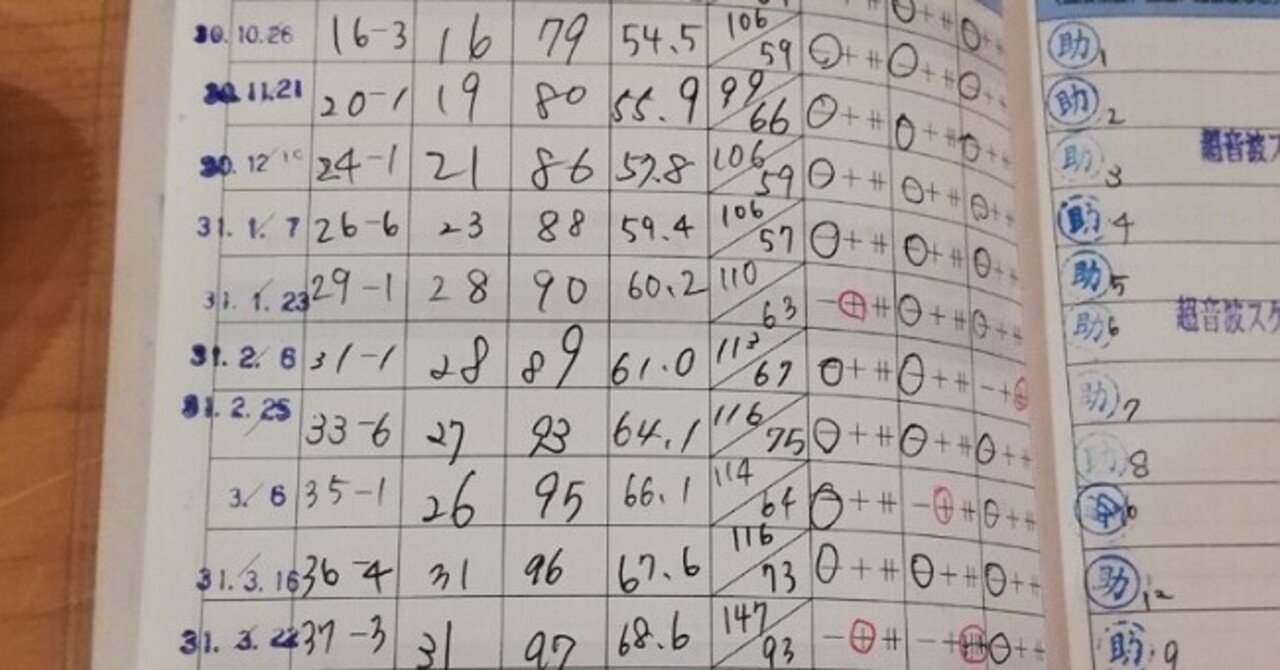 30.10.26 16-3 16 79 54.5 106/59 ⊖ + ⧺ ⊖ + ⧺ ⊖ + + 助 1
30.11.21 20-1 19 80 55.9 99/66 ⊖ + ⧺ ⊖ + ⧺ ⊖ + + 助 2
30.12 24-1 21 86 57.8 106/59 ⊖ + ⧺ ⊖ + ⧺ ⊖ + + 助 3 超音波ス
31.1.7 26-6 23 88 59.4 106/57 ⊖ + ⧺ ⊖ + ⧺ ⊖ + + 助 4
31.1.23 29-1 28 90 60.2 110/63 - ⊕ ⧺ ⊖ + ⧺ ⊖ + + 助 5
31.2.6 31-1 28 89 61.0 113/67 ⊖ + ⧺ ⊖ + ⧺ - + ⊕ 助 6 超音波スク
31.2.25 33-6 27 93 64.1 116/75 ⊖ + ⧺ ⊖ + ⧺ ⊖ + + 助 7
3.6 35-1 26 95 66.1 114/64 ⊖ + ⧺ - ⊕ ⧺ ⊖ + + 8
31.3.16 36-4 31 96 67.6 116/73 ⊖ + ⧺ ⊖ + ⧺ ⊖ + + 助 12
31.3.22 37-3 31 97 68.6 147/93 - ⊕ ⧺ - + ⧺ ⊖ + + 助 9